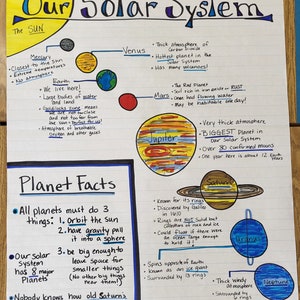 Our Solar System
The SUN
Mercury
• Closest to the Sun
• Extreme temperatures
• No atmosphere
Venus
• Thick atmosphere of
Carbon Dioxide
• Hottest planet in the
Solar System
• Has many volcanoes!
Earth
• We live here!
• Large bodies of water
and land
• Goldilocks Zone means
we are not too close
or too far from the
Sun - "perfect for us!"
• Atmosphere of breathable
oxygen and other gases
Mars
• The Red Planet
• Soil rich in iron oxide or RUST
• Once had flowing water
• May be habitable one day!
Jupiter
• Very thick atmosphere
• BIGGEST Planet in
our Solar System
• Over 50 confirmed moons
• One year here is about 12 Earth
Years
Saturn
• Known for its rings
• Discovered by Galileo
in 1610
• Rings are NOT solid but
• Could float if there were
an ocean large enough
to hold it!
Uranus
• Spins opposite of Earth
• Known as an ice giant
• Surrounded by
rings
Neptune
• Thick windy
atmosphere
• Surrounded by
rings
Planet Facts
• All planets must do 3
things: 1. orbit the Sun
2. have gravity pull
it into a sphere
3. be big enough to
have space for
smaller things
(No other big things
near them!)
• Our solar
system
has 8 major
planets
• Nobody knows how old Saturn's